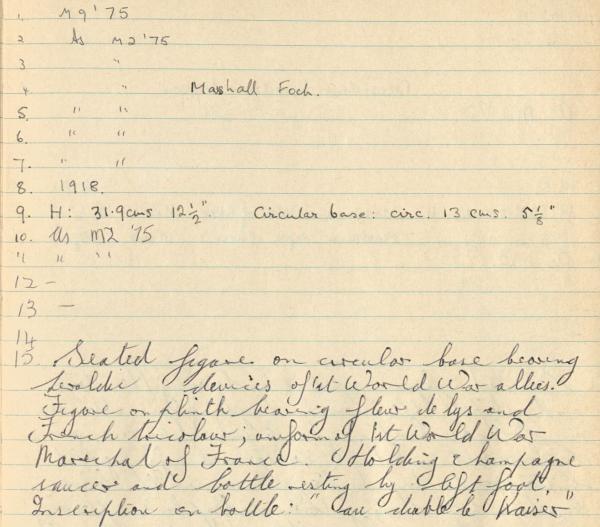 1. M9 '75
2 As M2 '75
3 "
4 " Marshall Foch.
5. " "
6. " "
7. " "
8. 1918.
9. H: 31.9cms 12½". Circular base: circ. 13 cms. 5⅛"
10. As M2 '75
11 " "
12 –
13 –
14
15 Seated figure on circular base bearing
heraldic devices of 1st World War allies.
Figure on plinth bearing fleur de lys and
French tricolour; uniform of 1st World War
Marechal of France. Holding champagne
saucer and bottle resting by left foot.
Inscription on bottle: "au diable le Kaiser"